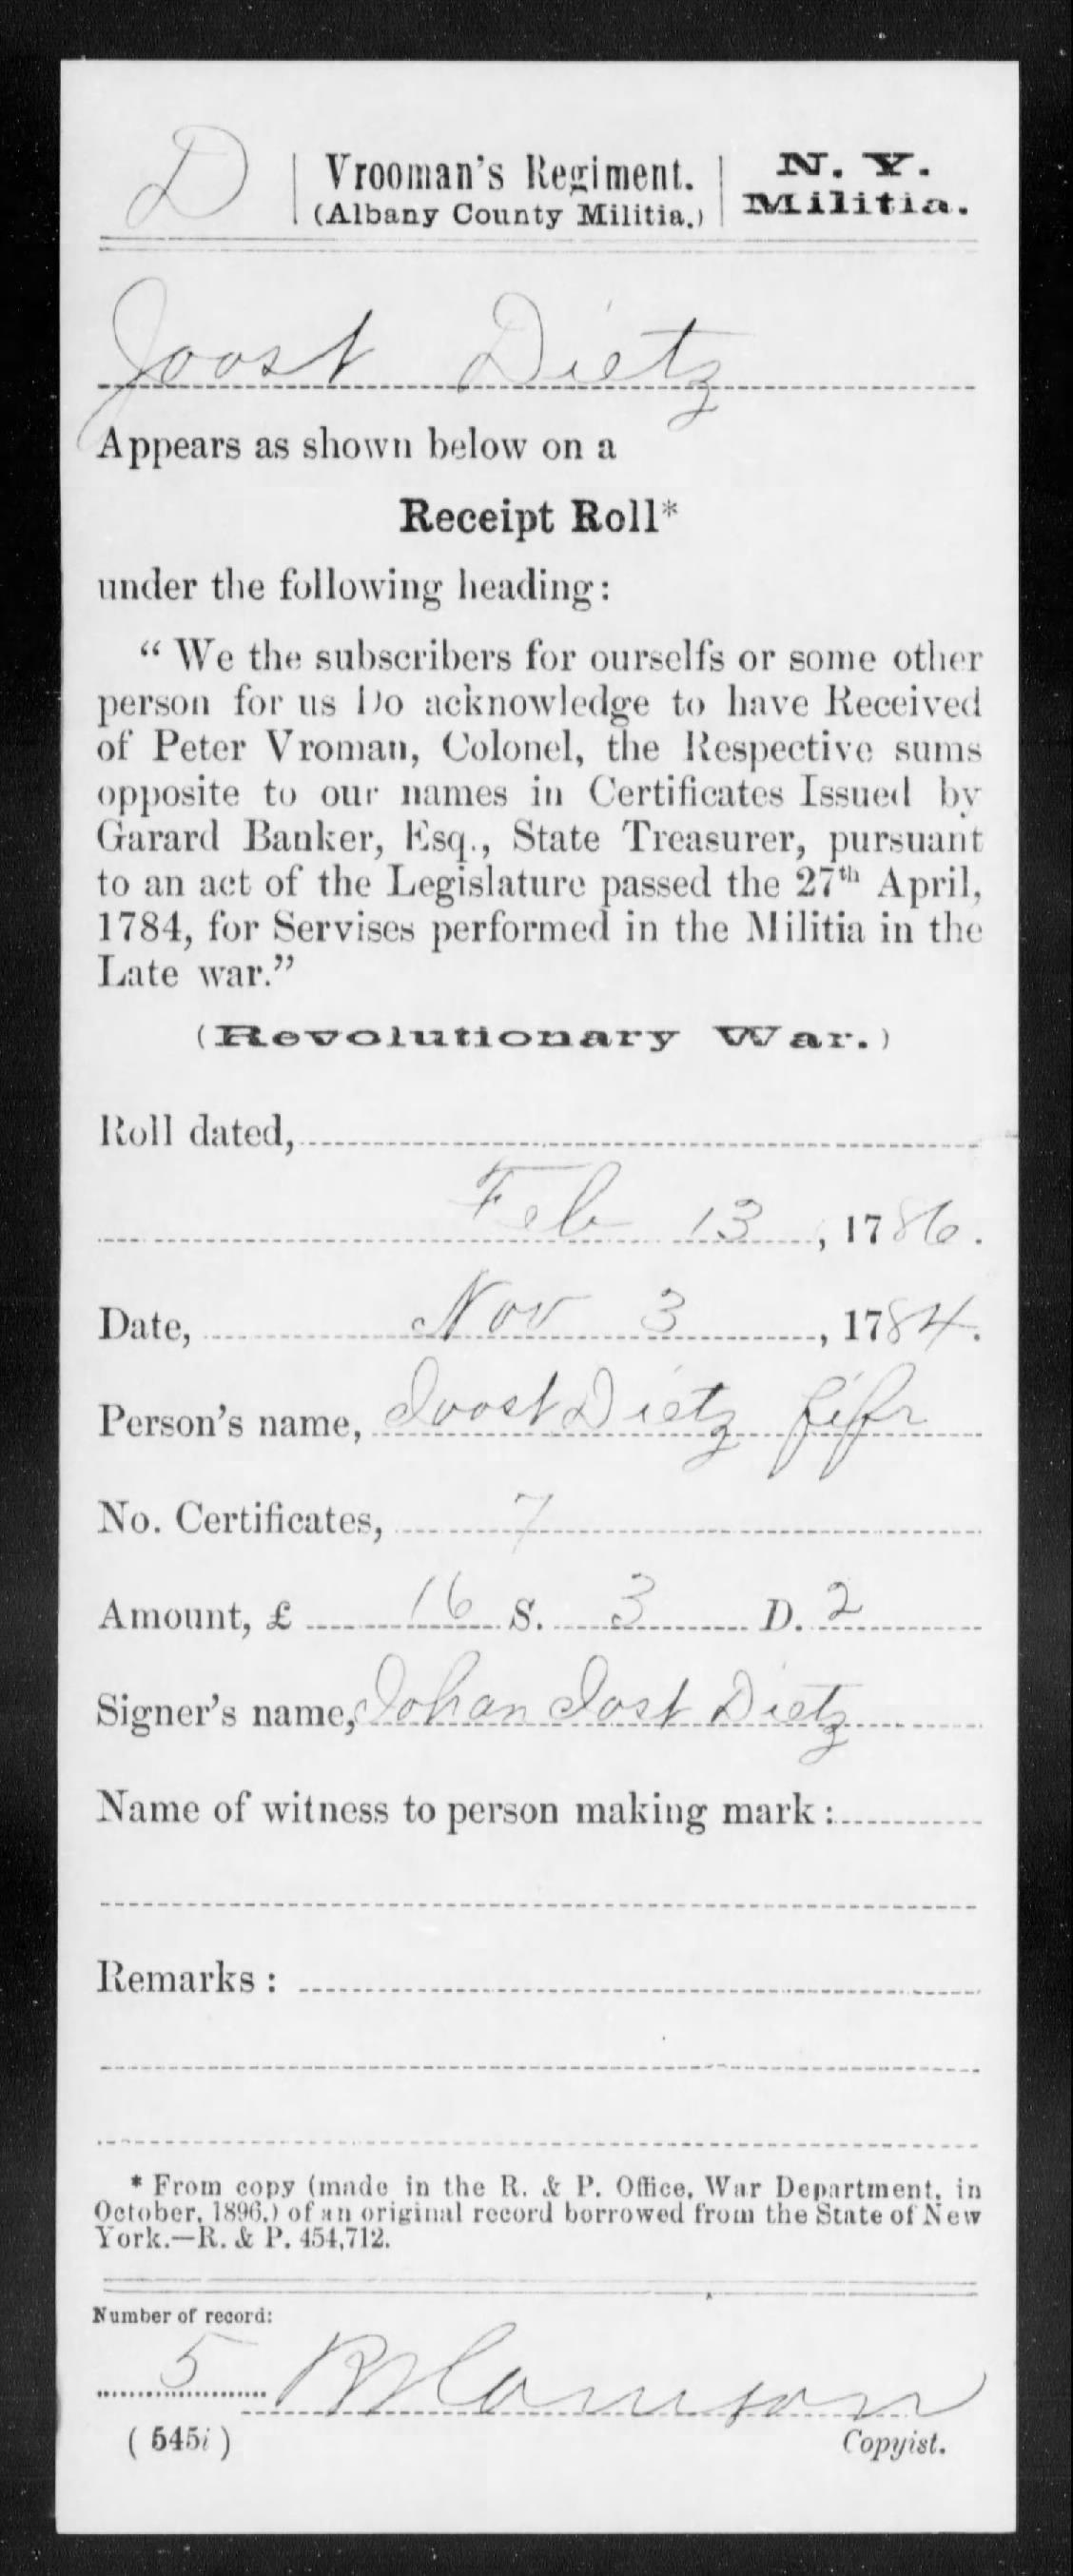 D Vrooman's Regiment. N. Y.
(Albany County Militia.) Militia.
Joost Dietz
Appears as shown below on a
Receipt Roll*
under the following heading:
"We the subscribers for ourselfs or some other
person for us Do acknowledge to have Received
of Peter Vroman, Colonel, the Respective sums
opposite to our names in Certificates Issued by
Garard Banker, Esq., State Treasurer, pursuant
to an act of the Legislature passed the 27th April,
1784, for Servises performed in the Militia in the
Late war."
(Revolutionary War.)
Roll dated,
Feb 13, 1786.
Date, Nov 3, 1784.
Person's name, Joost Dietz fifr
No. Certificates, 7
Amount, £ 16 S. 3 D. 2
Signer's name, Johan Jost Dietz
Name of witness to person making mark:
Remarks:
* From copy (made in the R. & P. Office, War Department, in
October, 1896,) of an original record borrowed from the State of New
York.—R. & P. 454,712.
Number of record:
5
(545i) Copyist.